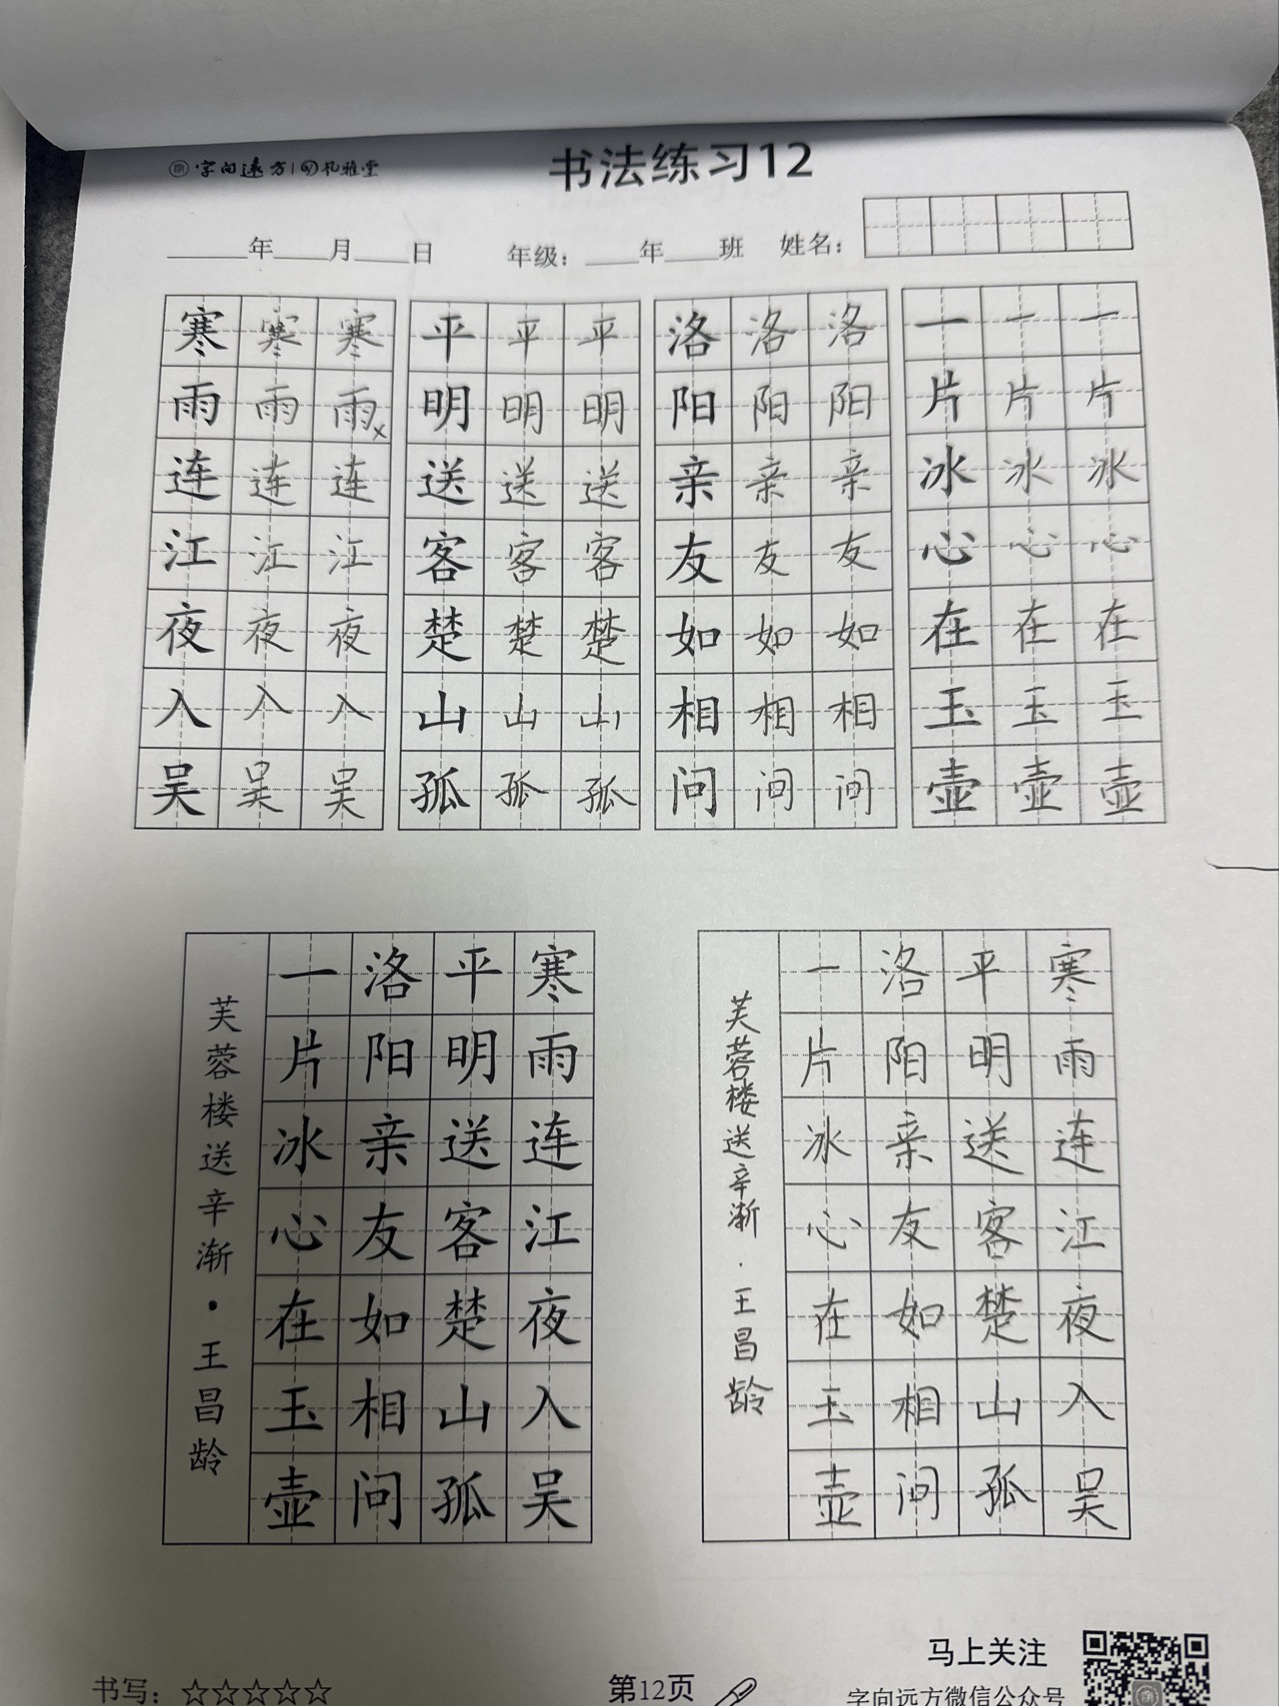 字向远方 孔雅堂
书法练习12
年 月 日 年级： 年 班 姓名：
寒寒寒 平平平 洛洛洛 一一一
雨雨雨x 明明明 阳阳阳 片片片
连连连 送送送 亲亲亲 冰冰冰
江江江 客客客 友友友 心心心
夜夜夜 楚楚楚 如如如 在在在
入入入 山山山 相相相 玉玉玉
吴吴吴 孤孤孤 问问问 壶壶壶
寒雨连江夜入吴
平明送客楚山孤
洛阳亲友如相问
一片冰心在玉壶
芙蓉楼送辛渐·王昌龄
寒雨连江夜入吴
平明送客楚山孤
洛阳亲友如相问
一片冰心在玉壶
芙蓉楼送辛渐·王昌龄
书写：☆☆☆☆☆
第12页
马上关注
字向远方微信公众号